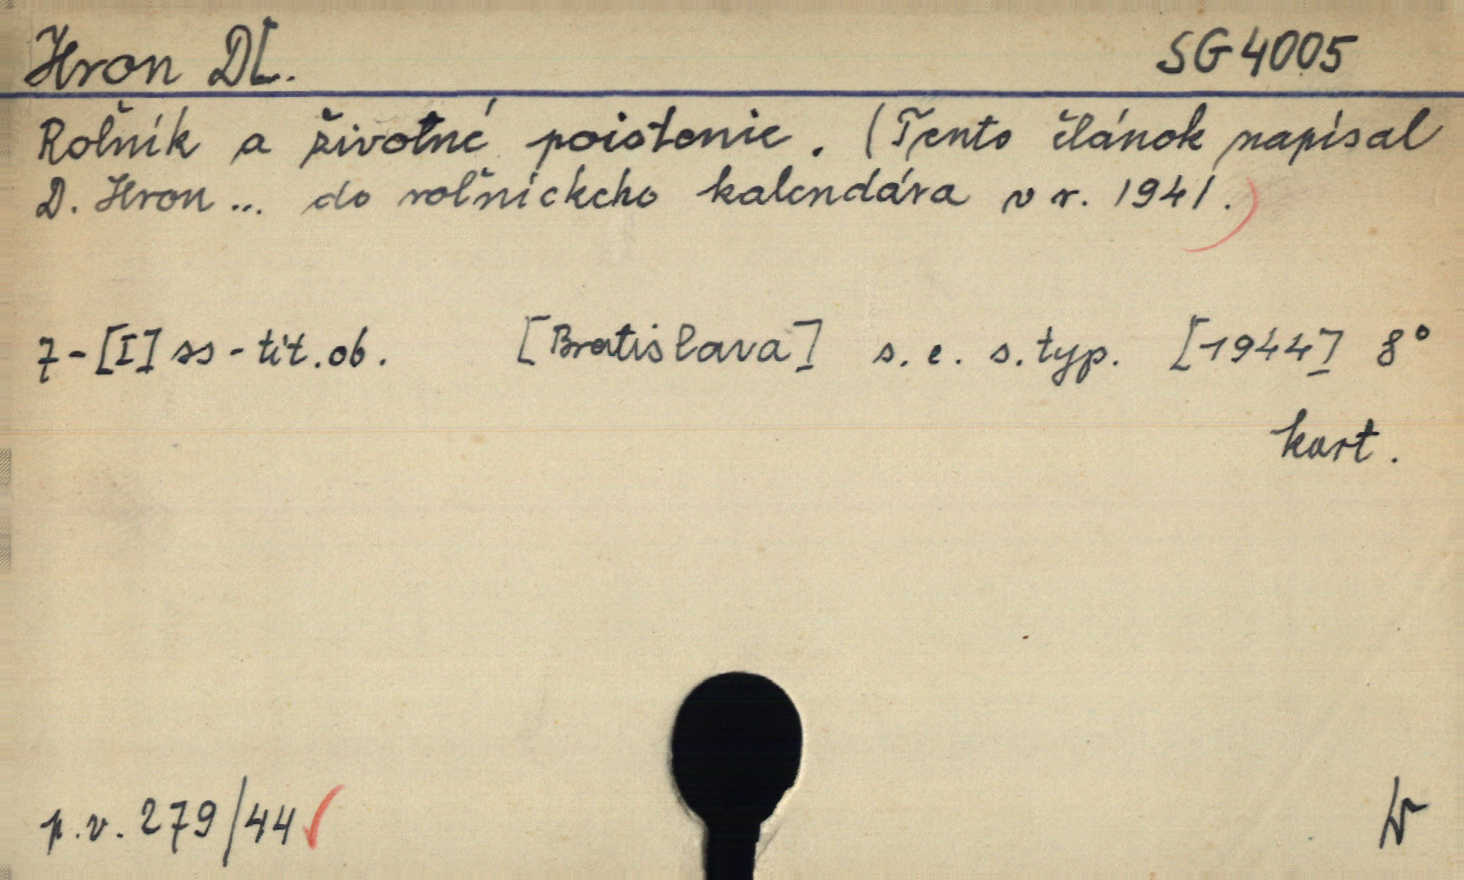 Hron D[. SG 4005
Roľník a životné poistenie. (Tento článok napísal
D. Hron... do roľníckeho kalendára v r. 1941.)
7-[I] ss - tit. ob. [Bratislava] s. e. s. typ. [1944] 8°
kart.
p.v. 279/44